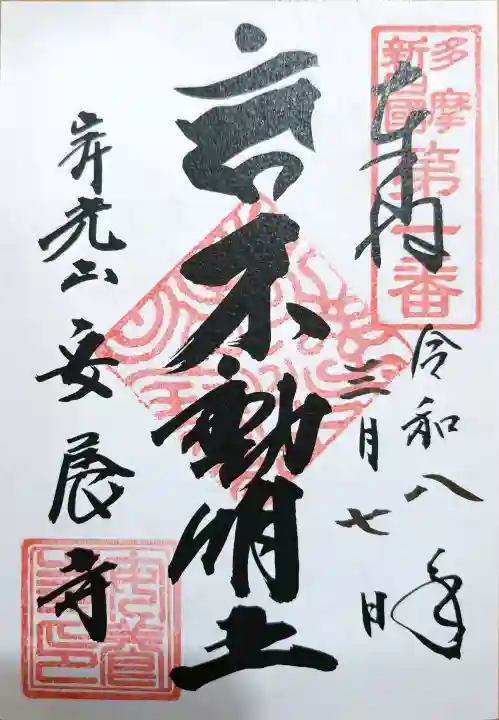 多摩
新四國
第一番
奉納
令和八年
三月七日
不動明王
光山 安養寺